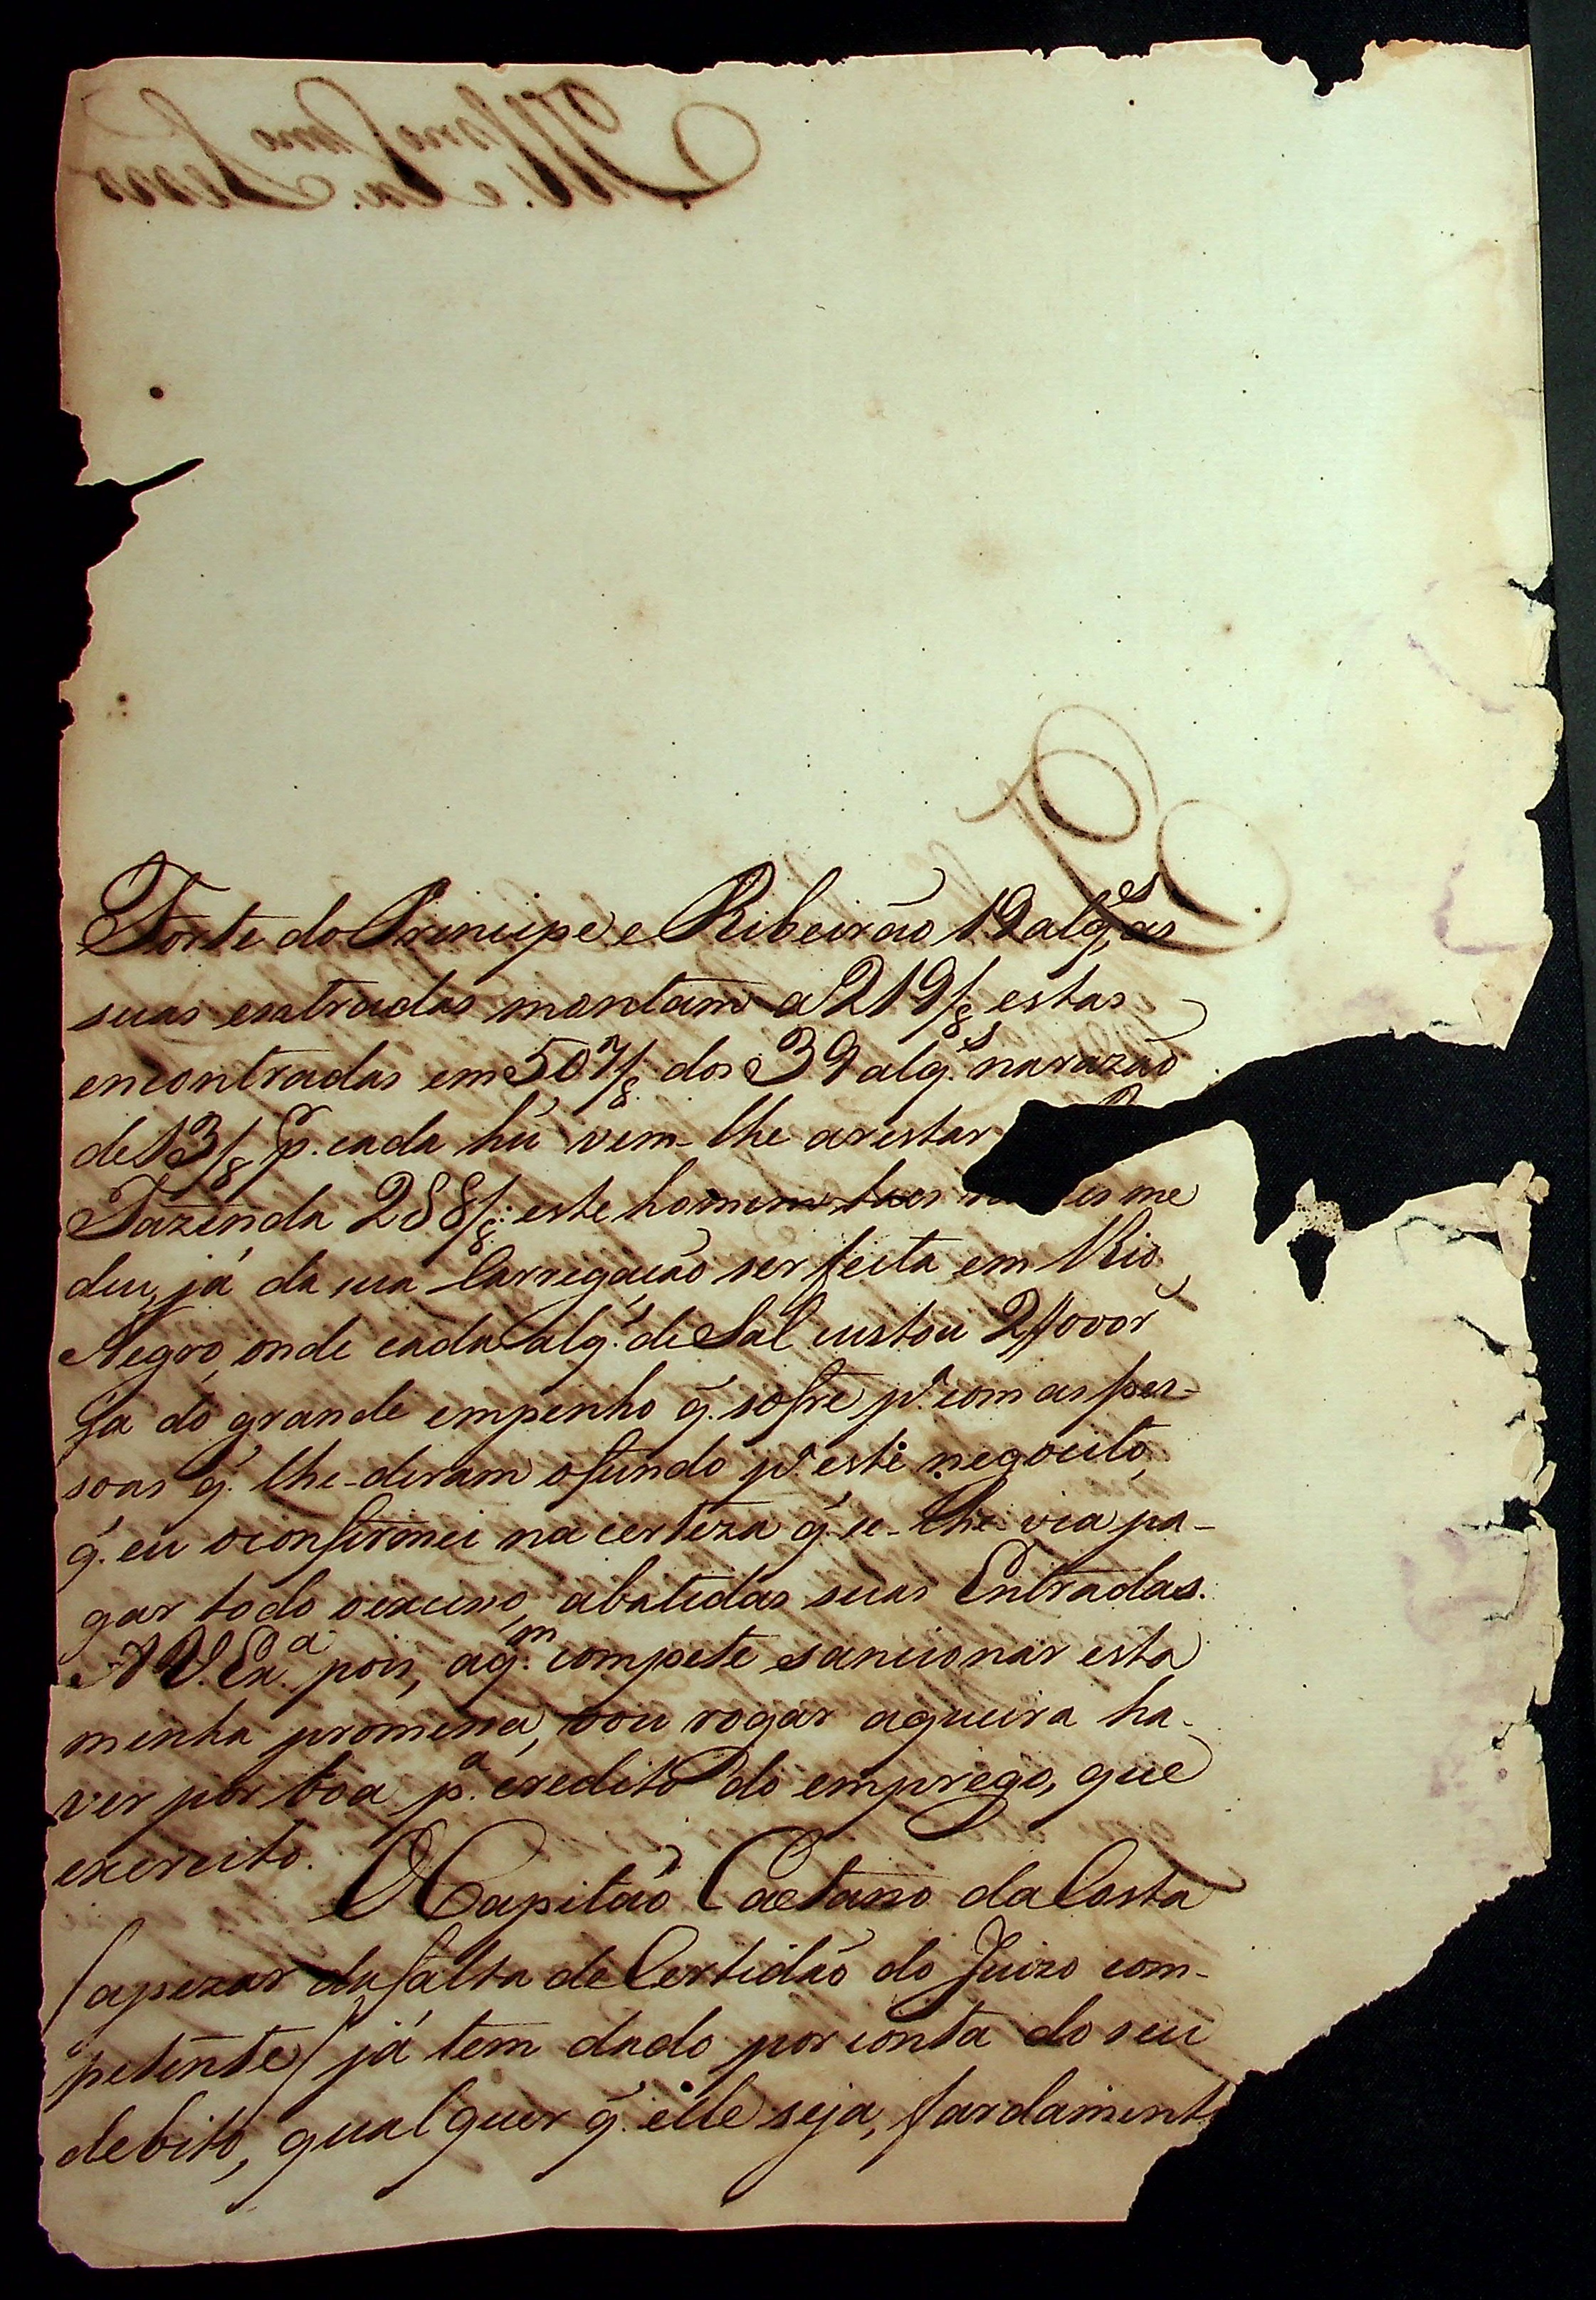 Forte do Principe e Ribeirão 19 alq.es, as
suas entradas montam a 219/8.s estas
encontradas em 507/8. dos 39 alq.s na razão
de 13/8 p.r cada hũ vem-lhe a restar
Fazenda 288/8: este homem me
deu, já da sua Carregação ser feita em Rio
Negro, onde cada alq.e de Sal custou 2$000r
ja do grande empenho q̃. sofre p.a com as pes-
soas q̃. lhe-deram o fundo p.a este negocito,
q̃. eu o confirmei na certeza q̃ se-lhe via pa-
gar todo o excesso, abatidas suas Entradas.
A V. Ex.a pois, a q.m compete sancionar esta
minha promessa, vou rogar a queira ha-
ver por boa p.a credito do emprego, que
exercito.
O Capitão Caetano da Costa
(apezar da falta de Certidão do Juizo com-
petente) já tem dado por conta do seu
debito, qualquer q̃. elle seja, fardament